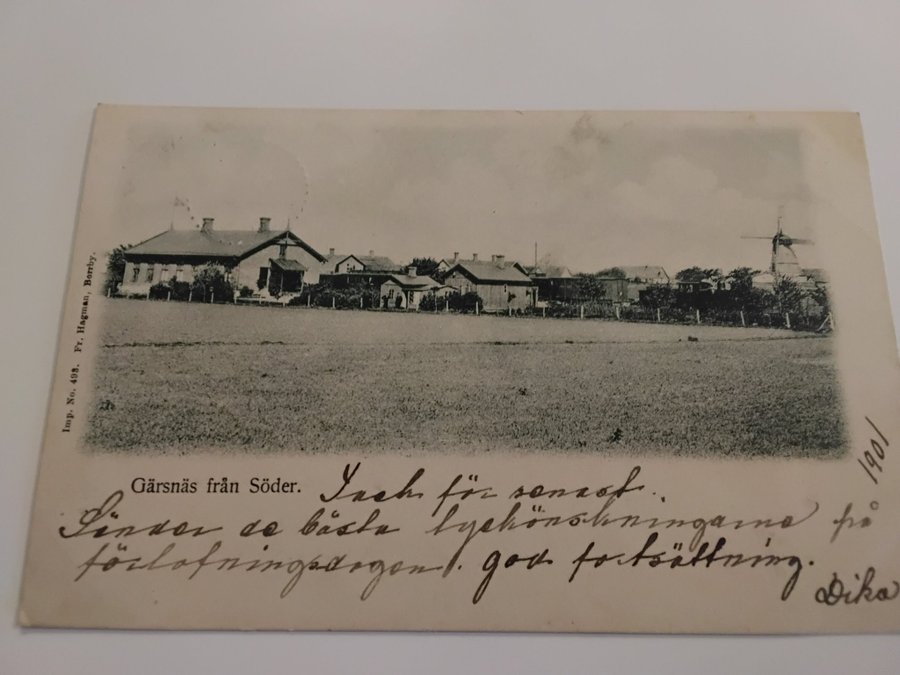 Imp. No. 493. Fr. Hagman, Borrby.
Gärsnäs från Söder.
Tack för senast.
Sänder de bästa lyckönskningarna på
förlofningsdagen. god fortsättning.
Dika
1901